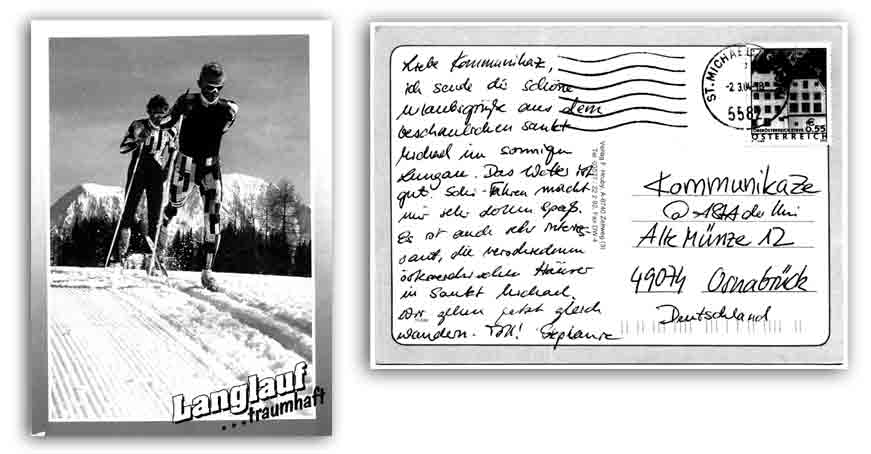 Langlauf
...traumhaft
Liebe Kommunikaz,
ich sende dir schöne
Urlaubsgrüße aus dem
beschaulichen Sankt
Michael im sonnigen
Lungau. Das Wetter ist
gut, Schi-Fahren macht
mir sehr dollen Spaß.
Es ist auch sehr interes-
sant, die verschiedenen
österreichischen Häuser
in Sankt Michael.
Wir gehen jetzt gleich
wandern. Toll! Stephanie
ST. MICHAEL
5582
€ 0,55
ÖSTERREICH
Kommunikaze
Alte Münze 12
49074 Osnabrück
Deutschland